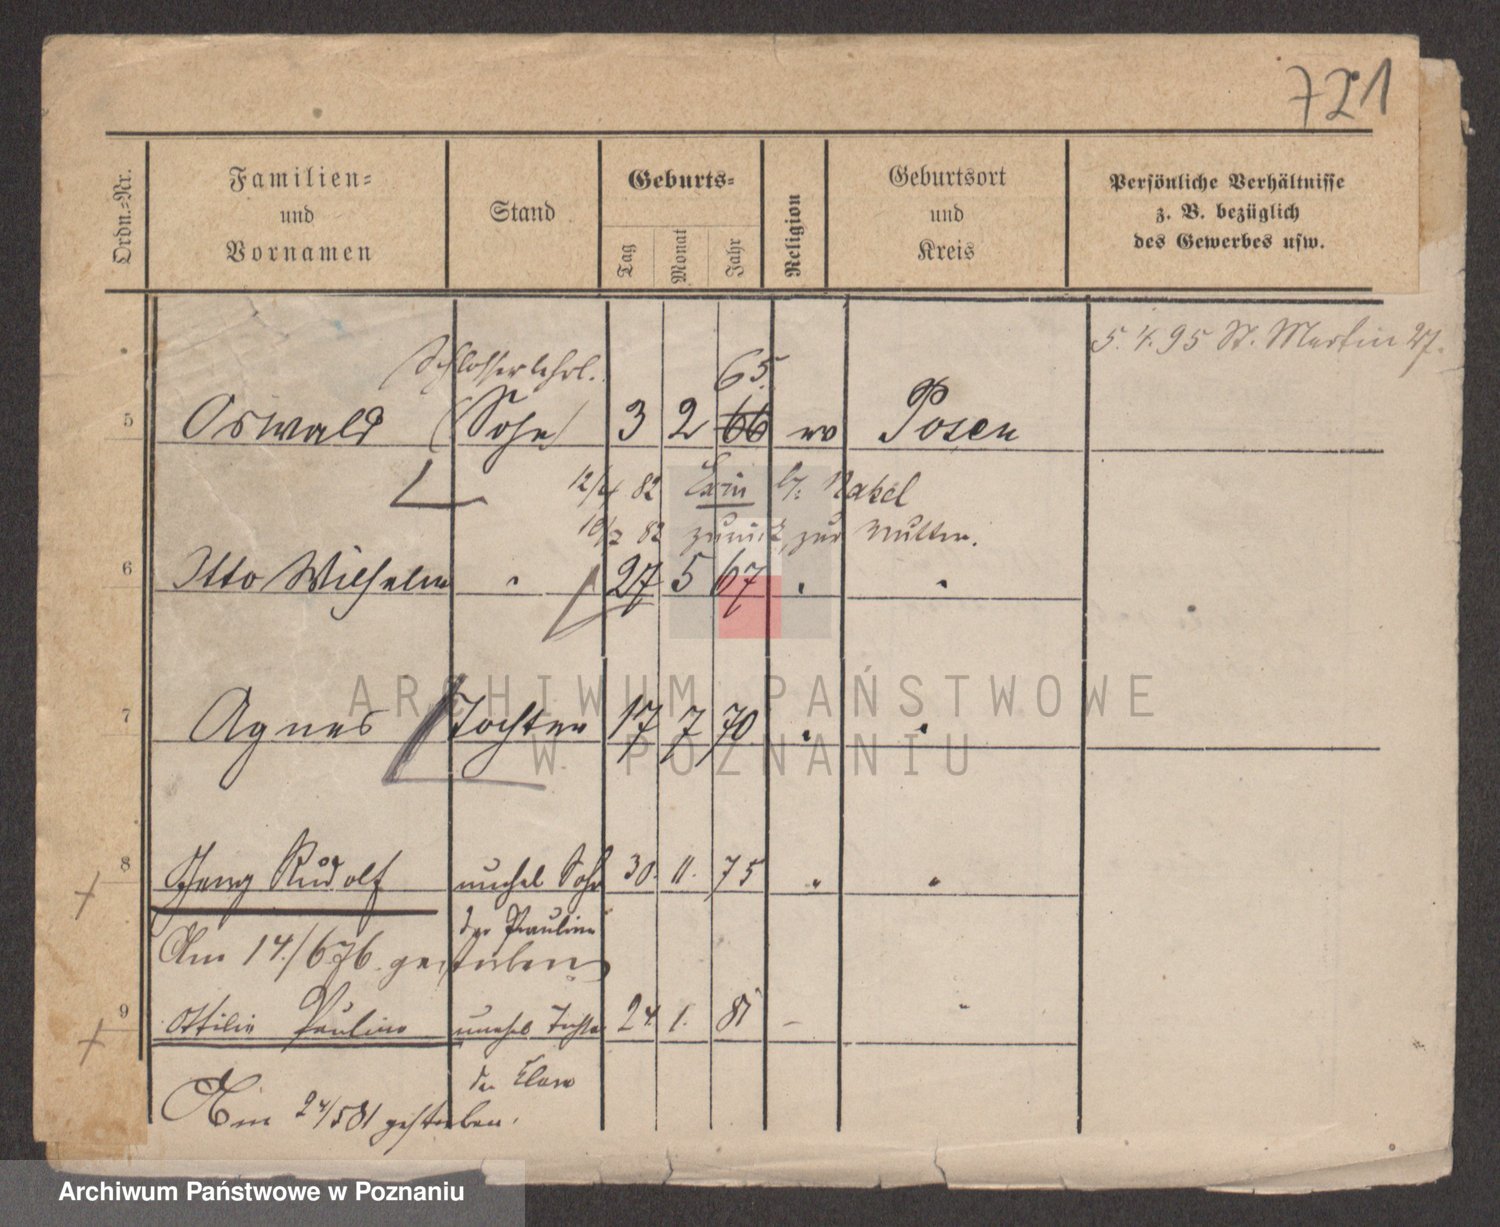 721
Ordn.-Nr.
Familien-
und
Vornamen
Stand
Geburts-
Tag
Monat
Jahr
Religion
Geburtsort
und
Kreis
Persönliche Verhältnisse
z. B. bezüglich
des Gewerbes usw.
5. 4. 95 St. Martin 27.
Schlosserlehrl. 65.
5 Oswald (Sohn) 3 2 66 ev Posen
12/4 82 Exin b. Nakel
10/7 82 zurück, zur Mutter.
6 Otto Wilhelm " 27 5 67 " "
7 Agnes Tochter 17 7 70 " "
8 Georg Rudolf unehel Sohn 30. 11. 75 " "
der Pauline
Am 14./676. gestorben
9 Ottilie Pauline unehel Tochter 24. 1. 81 – "
der Clara
Am 24/581 gestorben.
ARCHIWUM PAŃSTWOWE
W POZNANIU
Archiwum Państwowe w Poznaniu